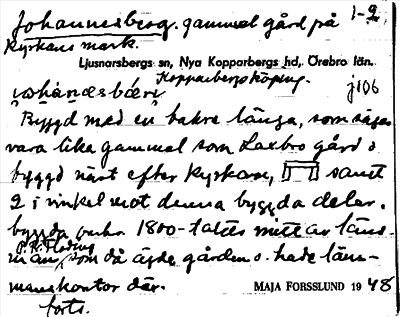 Johannesberg. gammal gård på 1-2.
kyrkans mark.
Ljusnarsbergs sn, Nya Kopparbergs hd, Örebro län.
Kopparbergs köping.
j106
Byggd med en bakre länga, som säges
vara lika gammal som Laxbro gård o
byggd näst efter kyrkan, samt
2 i vinkel mot denna byggda delar.
byggda under 1800-talets mitt av läns-
man, som då ägde gården o. hade läns-
manskontor där.
MAJA FORSSLUND 1948
forts.